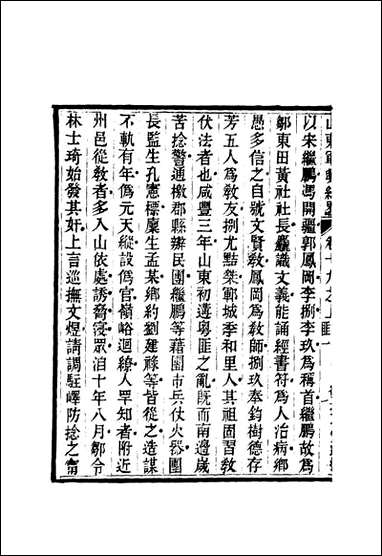 山東軍興紀略卷十九之上
以宋繼鵬馮開疆郭鳳岡李捌李玖爲稱首繼鵬故爲
鄒東田黃社社長麤識文義能誦經書符爲人治病鄉
愚多信之自號文賢教鳳岡爲教師捌玖奉鈞樹德存
芳五人爲教友捌尤點桀鄆城李和里人其祖固習教
伏法者也咸豐三年山東初遘粵匪之亂既而南邊歲
苦捻警通檄郡縣辦民團繼鵬等藉團市兵仗火器團
長監生孔憲標廩生孟某鄉約劉建祿等皆從之造謀
不軌有年爲元天縱設爲官嶺峪迴繚人罕知者附近
州邑從教者多入山依處誘脅寖眾洎十年八月鄒令
林士琦始發其奸上言巡撫文煜請調駐嶧防捻之